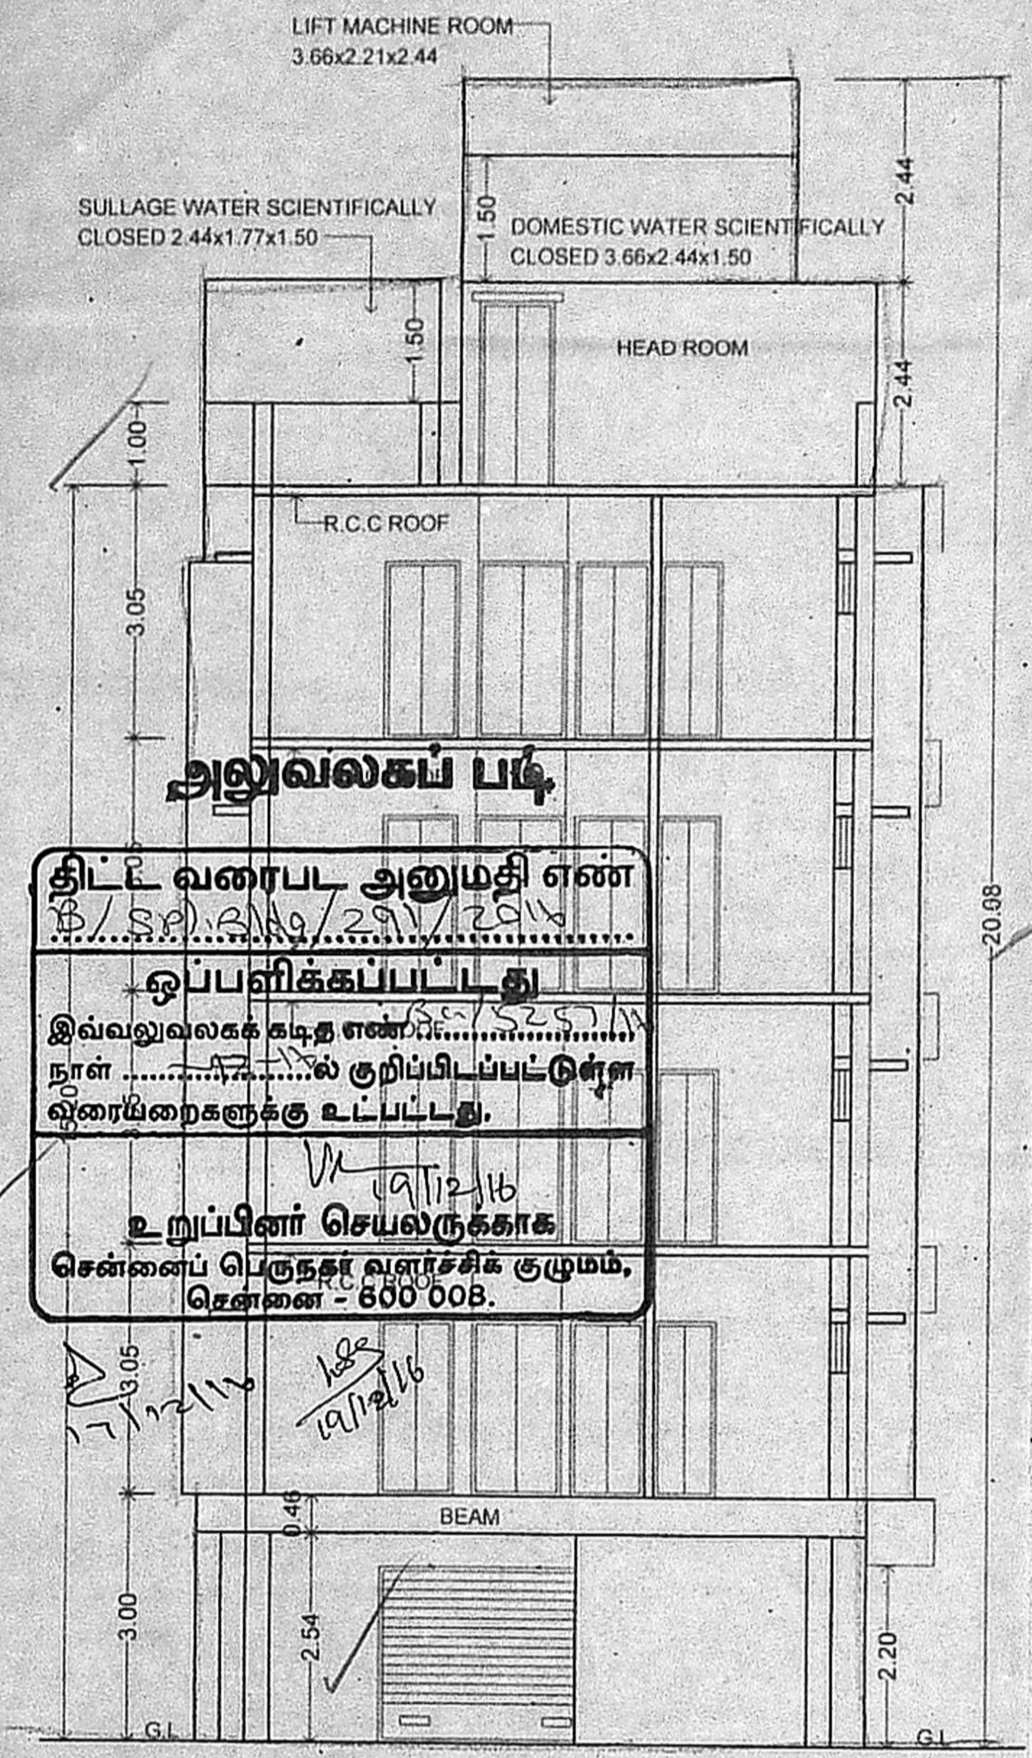 LIFT MACHINE ROOM
3.66x2.21x2.44
2.44
SULLAGE WATER SCIENTIFICALLY
CLOSED 2.44x1.77x1.50
1.50
DOMESTIC WATER SCIENTIFICALLY
CLOSED 3.66x2.44x1.50
1.50
HEAD ROOM
2.44
1.00
R.C.C ROOF
3.05
அலுவலகப் படி
திட்ட வரைபட அனுமதி எண்
20.08
ஒப்பளிக்கப்பட்டது
இவ்வலுவலகக் கடித எண்
நாள் ல் குறிப்பிடப்பட்டுள்ள
வரையறைகளுக்கு உட்பட்டது.
19/12/16
உறுப்பினர் செயலருக்காக
சென்னைப் பெருநகர் வளர்ச்சிக் குழுமம்,
R.C.C ROOF
சென்னை - 600 008.
3.05
19/12/16
0.46
BEAM
3.00
2.54
2.20
G.L
G.L